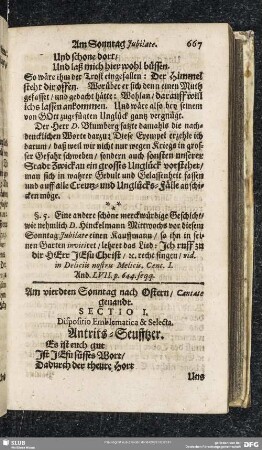 Am Sonntag Jubilate. 667
Und schone dort/
Und laß mich hier wohl büssen.
So wäre ihm der Trost eingefallen: Der Himmel
steht dir offen. Worüber er sich denn einen Muth
gefasset/ und gedacht hätte: Wohlan/ darauff will
ichs lassen ankommen. Und wäre also bey seinem
von GOtt zugefügten Unglück gantz vergnügt.
Der Herr D. Blumberg satzte damahls die nach-
dencklichen Worte darzu: Diese Exempel erzehle ich
darum/ daß weil wir nicht nur wegen Kriegs in gros-
ser Gefahr schweben/ sondern auch sonsten unserer
Stadt Zwickau ein grosses Unglück vorstehet/
man sich in wahrer Gedult und Gelassenheit fassen
und auff alle Creutz- und Unglücks-Fälle anschi-
cken möge.
* * *
§. 5. Eine andere schöne merckwürdige Geschicht/
wie nehmlich D. Hinckelmann Mittwochs vor diesem
Sonntag Jubilate einen Kauffmann/ so ihn in sei-
nen Garten invitiret/ lehret das Lied: Ich ruff zu
dir HErr JEsu Christ/ &c. recht singen/ vid.
in Deliciis nostris Melicis, Cent. I.
And. LVII. p. 644. seqq.
Am vierdten Sonntag nach Ostern/ Cantate
genandt.
SECTIO I.
Dispositio Emblematica & Selecta.
Antrits-Seufftzer.
Es ist euch gut.
Ist JEsu süsses Wort/
Dadurch der theure Hort
Uns
SLUB